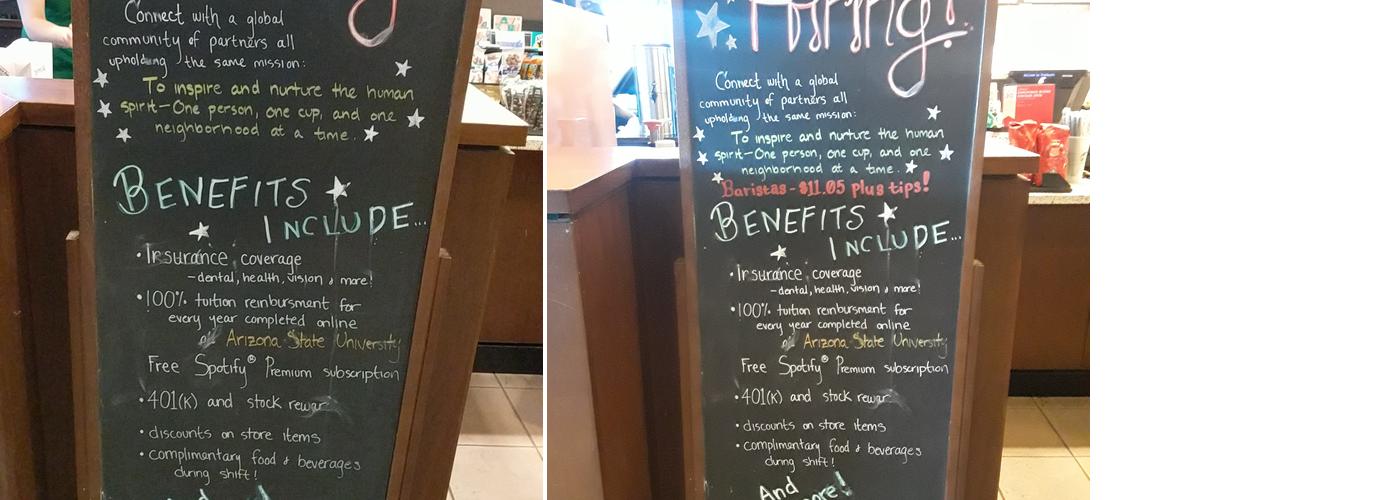 Connect with a global
community of partners all
upholding the same mission:
To inspire and nurture the human
spirit—One person, one cup, and one
neighborhood at a time.
BENEFITS
INCLUDE...
• Insurance coverage
-dental, health, vision & more!
• 100% tuition reinbursment for
every year completed online
@ Arizona State University
Free Spotify® Premium subscription
• 401(K) and stock rewar
• discounts on store items
• complimentary food & beverages
during shift!
And
Hiring!
Connect with a global
community of partners all
upholding the same mission:
To inspire and nurture the human
spirit—One person, one cup, and one
neighborhood at a time.
Baristas - $11.05 plus tips!
BENEFITS
INCLUDE...
• Insurance coverage
-dental, health, vision & more!
• 100% tuition reinbursment for
every year completed online
@ Arizona State University
Free Spotify® Premium subscription
• 401(K) and stock rewar
• discounts on store items
• complimentary food & beverages
during shift!
And
more!